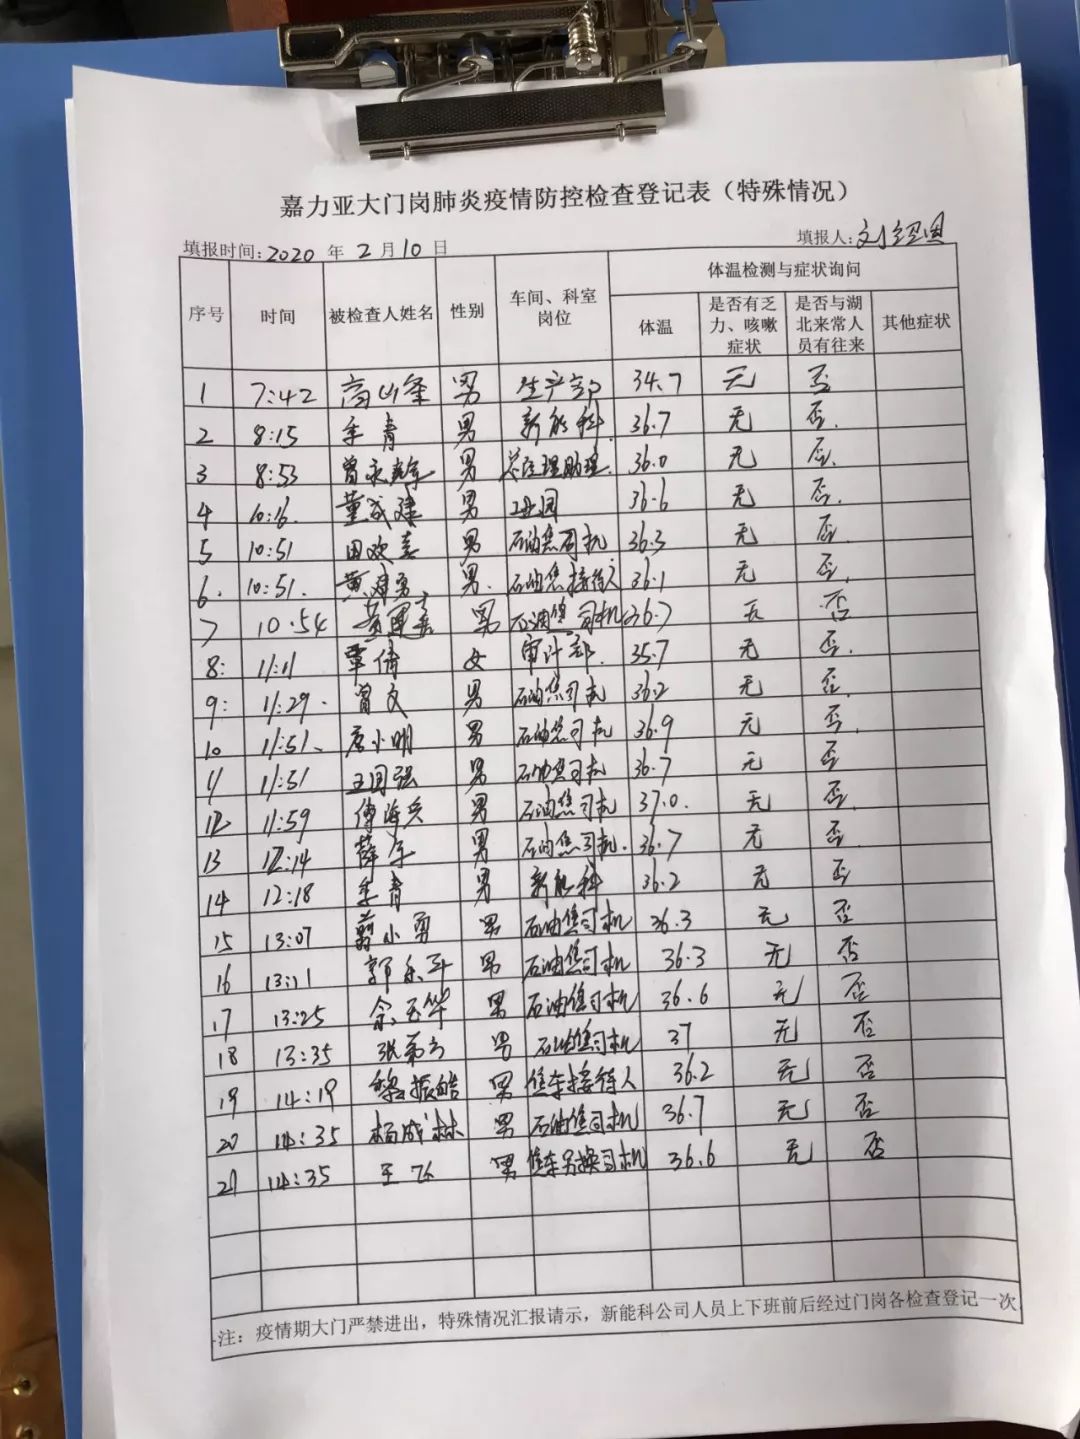 嘉力亚大门岗肺炎疫情防控检查登记表（特殊情况）
填报时间:2020 年 2 月 10 日 填报人:刘
序号 时间 被检查人姓名 性别 车间、科室岗位 体温检测与症状询问
体温 是否有乏力、咳嗽症状 是否与湖北来常人员有往来 其他症状
1 7:42 高山 男 生产部 34.7 无 否
2 8:15 青 男 新能科 36.7 无 否.
3 8:53 曾永 男 总经理助理 36.0 无 否.
4 10:16. 董成建 男 36.6 无 否.
5 10:51 田欢喜 男 石油焦司机 36.3 无 否
6. 10:51. 黄 勇 男. 石油焦接待人 36.1 无 否.
7 10.54 黄 男 石油焦司机 36.7 无 否
8: 11:11 覃倩 女 审计部. 35.7 无 否.
9: 11:29. 曾文 男 石油焦司机 36.2 无 否.
10 11:51. 唐小明 男 石油焦司机 36.9 无 否.
11 11:51 王国强 男 石油焦司机 36.7 无 否
12 11:59 傅海兵 男 石油焦司机 37.0. 无 否.
13 12:14 薛 男 石油焦司机. 36.7 无 否
14 12:18 青 男 新能科 36.2 无 否
15 13:07 小勇 男 石油焦司机 36.3 无 否
16 13:11 郭 男 石油焦司机 36.3 无 否
17 13:25 余玉华 男 石油焦司机 36.6 无 否
18 13:35 张 男 石油焦司机 37 无 否
19 14:19 黎振皓 男 焦车接待人 36.2 无 否
20 14:35 杨成林 男 石油焦司机 36.7 无 否
21 14:35 王飞 男 焦车另换司机 36.6 无 否
注：疫情期大门严禁进出，特殊情况汇报请示，新能科公司人员上下班前后经过门岗各检查登记一次